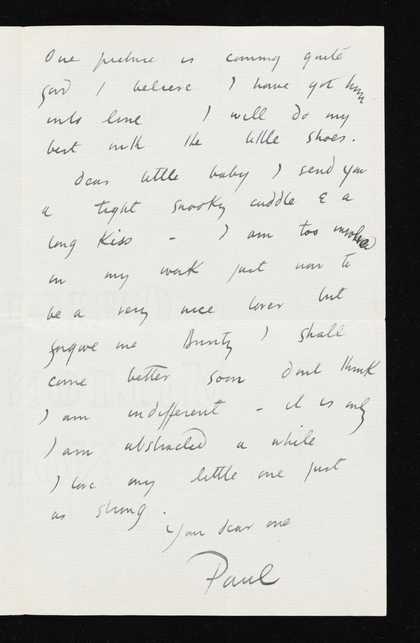 One picture is coming quite
good I believe I have got him
into line I will do my
best with the little shoes.
Dear little baby I send you
a tight snooky cuddle & a
long kiss - I am too involved
in my work just now to
be a very nice lover but
forgive me Bunty I shall
come better soon dont think
I am indifferent - it is only
I am abstracted a while
I love my little one just
as strong.
Your dear one
Paul